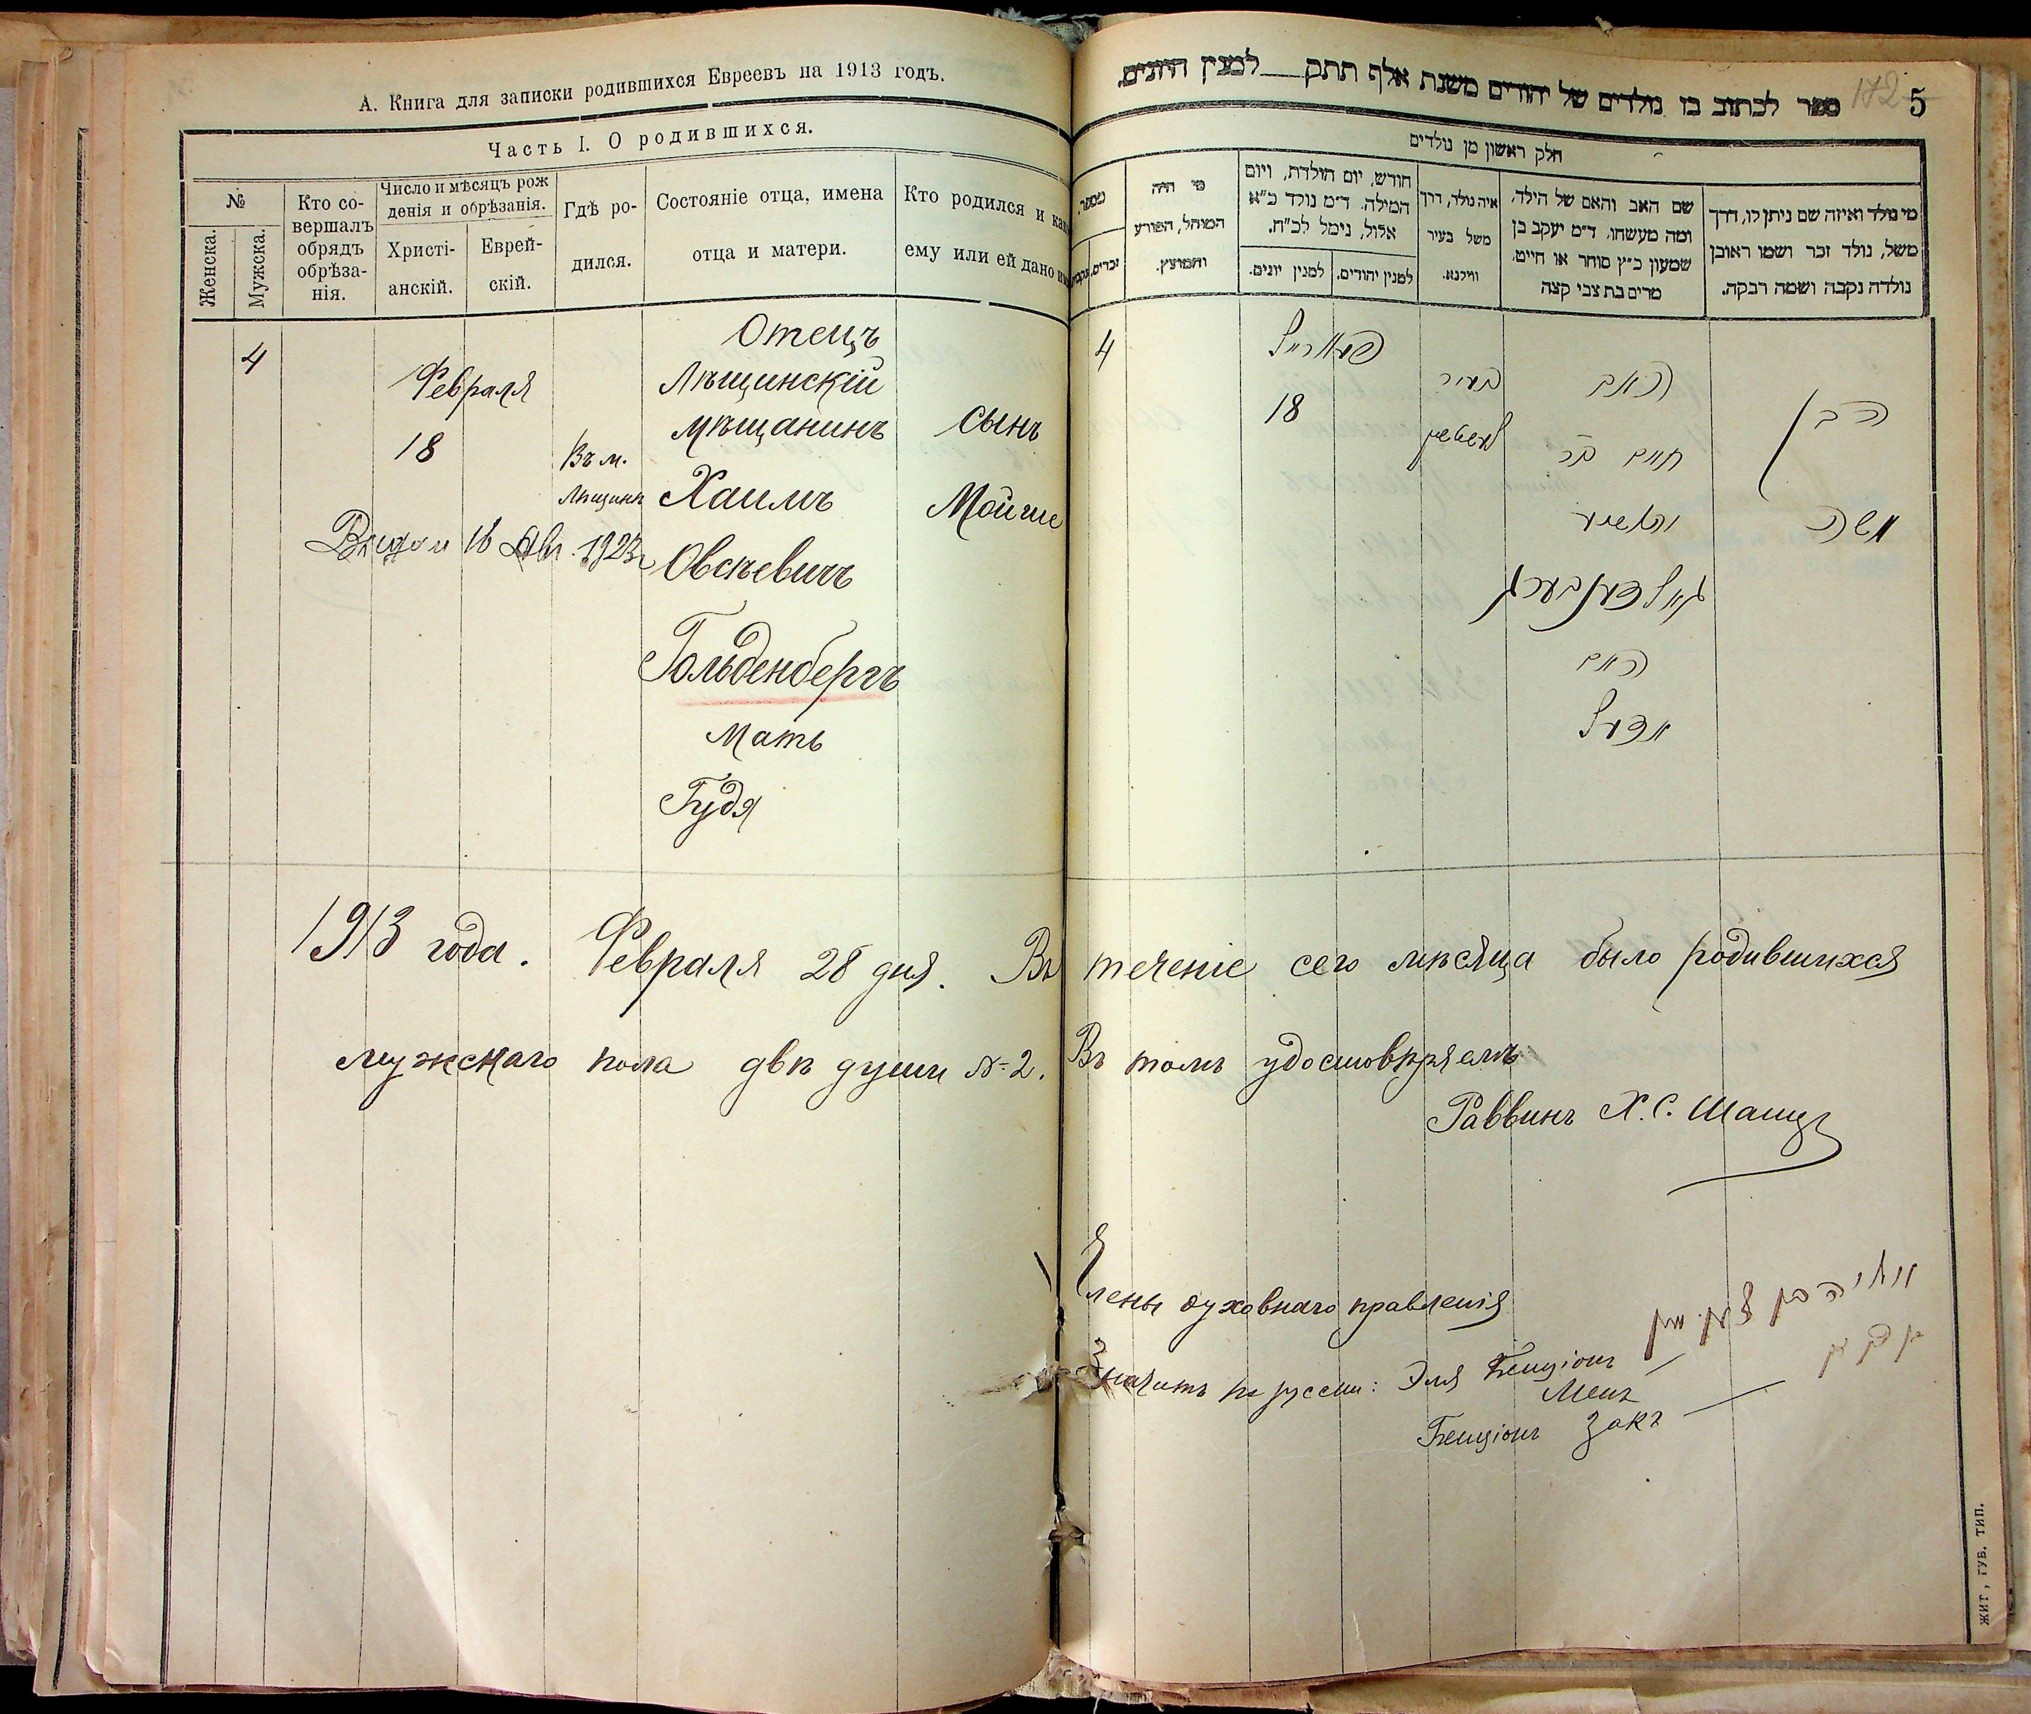 А. Книга для записки родившихся Евреевъ на 1913 годъ.
Часть I. О родившихся.
№
Женска.
Мужска.
Кто со-
вершалъ
обрядъ
обрѣза-
нія.
Число и мѣсяцъ рож
денія и обрѣзанія.
Христі-
анскій.
Еврей-
скій.
Гдѣ ро-
дился.
Состояніе отца, имена
отца и матери.
Кто родился и как
ему или ей дано им
4
Февраля
18
Въ м.
Лѣщинѣ
Отецъ
Лѣщинскій
мѣщанинъ
Хаимъ
Овсѣевичъ
Гольденбергъ
Мать
Гудя
сынъ
Мойше
16 1923
1913 года. Февраля 28 дня. Въ теченіе сего мѣсяца было родившихся
мужскаго пола двѣ души №2. Въ томъ удостовѣряемъ
Раввинъ Х. С.
172 5
ספר לכתוב בו נולדים של יהודים משנת אלף תתק למנין היונים.
חלק ראשון מן נולדים
מספר
זכרים.
מי היה
המוהל, הפורע
והמוצץ.
חודש, יום הולדת, ויום
המילה. ד"מ נולד כ"א
אלול, נימל לכ"ח.
למנין יונים.
למנין יהודים.
איה נולד, דרך
משל בעיר
ווילנא.
שם האב והאם של הילד,
ומה מעשהו. ד"מ יעקב בן
שמעון כ"ץ סוחר או חייט,
מרים בת צבי קצה
מי נולד ואיזה שם ניתן לו, דרך
משל, נולד זכר ושמו ראובן
נולדה נקבה ושמה רבקה.
4
18
בעיר
האב
חיים בר
יהושיע
גאלדענבערג
האם
אדעל
הבן
משה
Члены духовнаго правленія
Значитъ по русски: Эля Бенціонъ
Менъ
Бенціонъ Закъ
ЖИТ, ГУБ. ТИП.